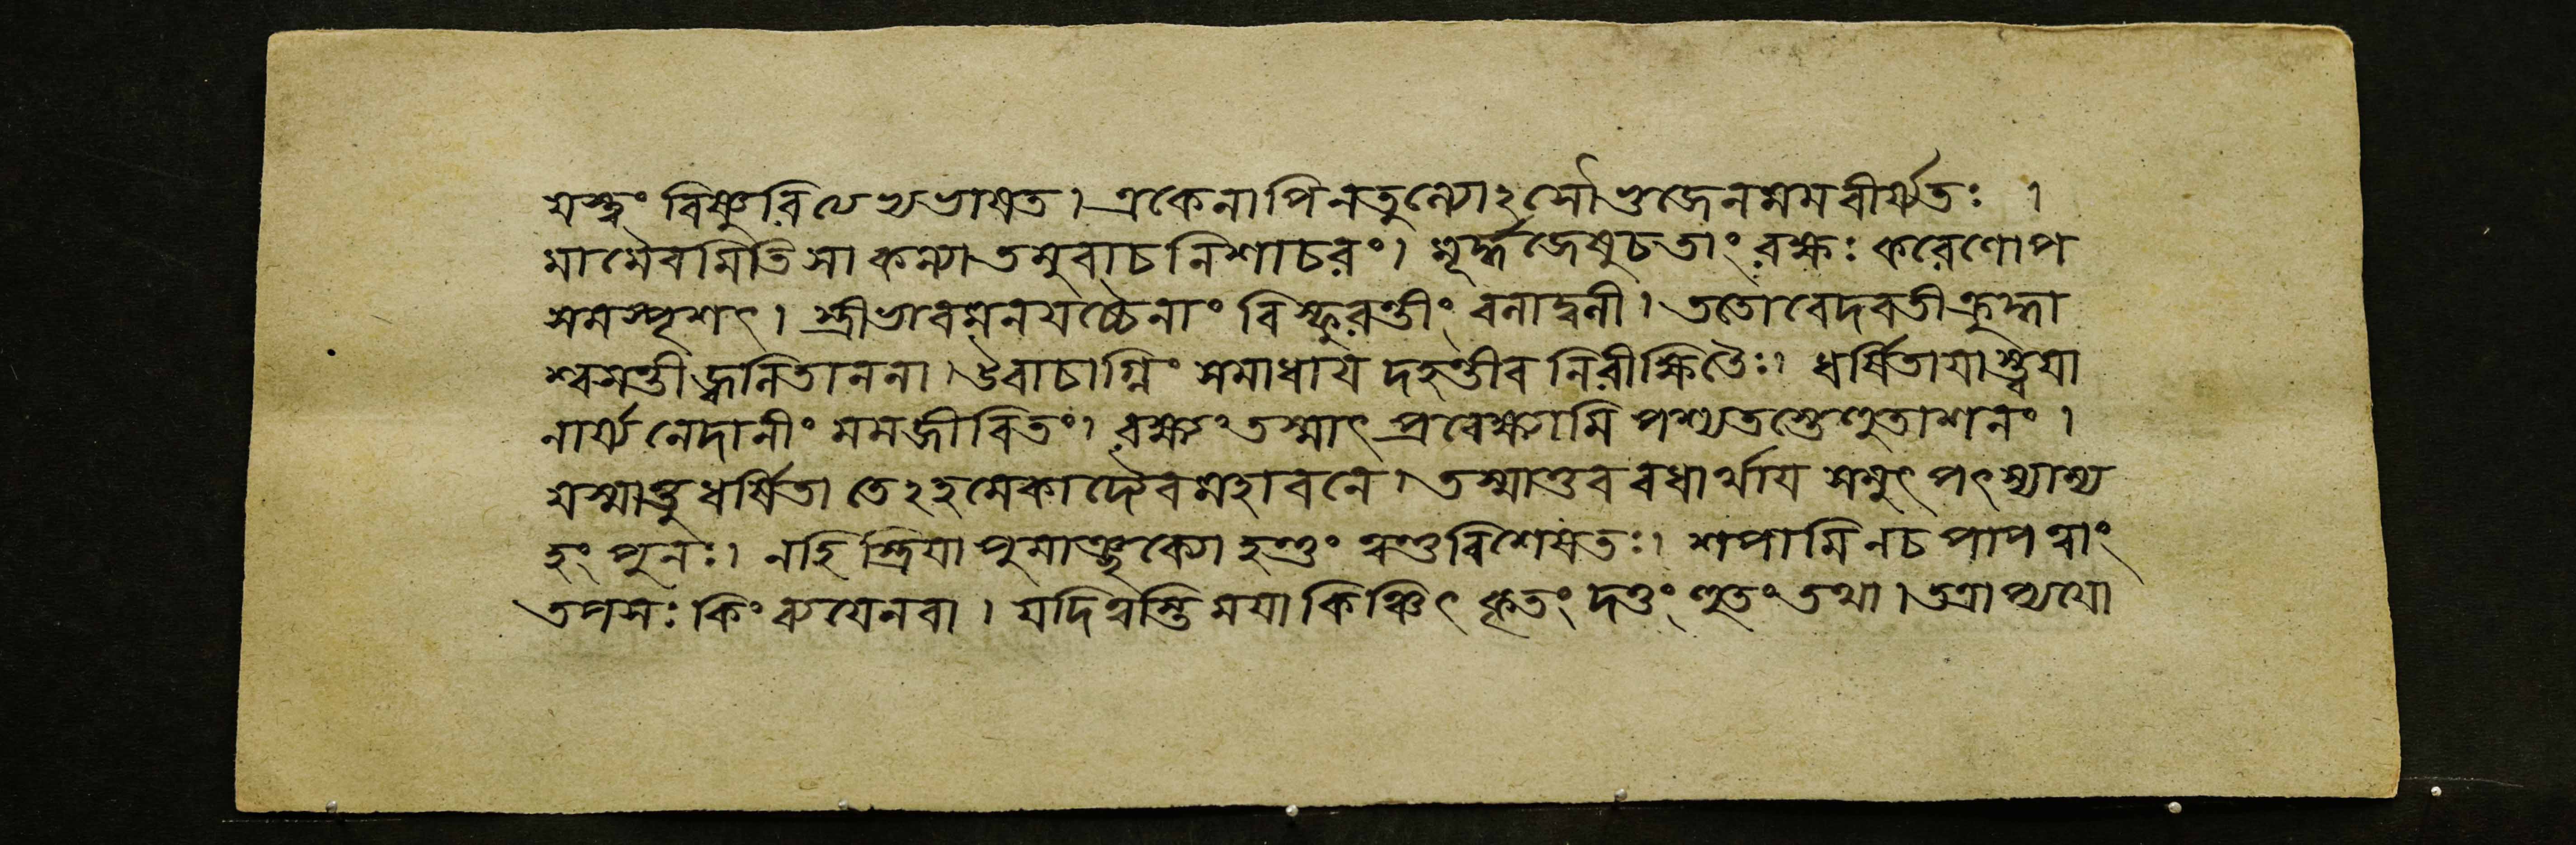 যস্ত্বং বিষ্ণুরিত্যেখভাষত। একেনাপিনতুল্যোঽসৌভুজেনমমবীর্য্যতঃ ।
মামৈবমিতিসা কন্যাতমুবাচ নিশাচরং। মূর্দ্ধজেষুচতাং রক্ষঃ করেণোপ
সমস্পৃশৎ। স্ত্রীভাবমনযচ্চৈনাং বিস্ফুরন্তীং বনাদ্বনী। ততোবেদবতীক্রুদ্ধা
শ্বসন্তীজ্বলিতাননা। উবাচাগ্নিং সমাধায দহন্তীব নিরীক্ষিতৈঃ। ধর্ষিতাযাস্ত্বযা
নার্য্য নেদানীং মমজীবিতং। রক্ষঃ তস্মাৎ প্রবেক্ষ্যামি পশ্যতস্তেহুতাশনং ।
যস্মাত্তুধর্ষিতা তেঽহমেকাদৈবমহাবনে। তস্মাত্তব বধার্থায সমুৎপৎস্যাম্য
হং পুনঃ। নহি স্ত্রিযা পুমাঞ্ছক্যো হন্তুং ত্বন্তুবিশেষতঃ। শপামি নচ পাপত্বাং
তপসঃ কিং ব্যযেনবা। যদি ত্বস্তি মযা কিঞ্চিৎ কৃতং দত্তং হুতং তথা। তত্রাপ্যযো